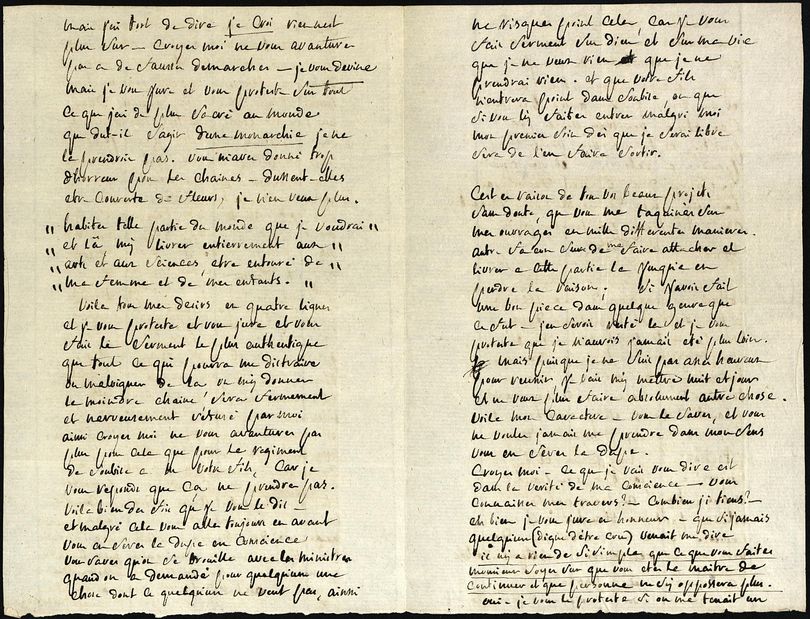 mais j'ai tort de dire je croi rien n'est
plus sur – croyez moi ne vous avanturez
pas a de fausses demarches – je vous devine
mais je vous jure et vous proteste sur tout
ce que j'ai de plus sacré au monde
que dut-il s'agir d'une monarchie je ne
le prendrois pas. vous m'avez donné trop
d'horreur pour les chaines – dussent-elles
etre couvertes de fleurs, je n'en veux plus.
"habiter telle partie du monde que je voudrai"
"et là m'y livrer entierement aux"
"arts et aux sciences, etre entouré de"
"ma femme et de mes enfants."
Voila tous mes desirs en quatre lignes
et je vous proteste et vous jure et vous
fais le serment le plus authentique
que tout ce qui pourra me distraire
ou m'aloigner de la ou m'y donner
le moindre chaine, sera fermement
et nerveusement refusé par moi
ainsi croyez moi ne vous avanturez pas
plus pour cela que pour le regiment
de Soubise a votre fils, car je
vous reponds que ça ne prendra pas.
Voila bien des fois que je vous le dis –
et malgré cela vous allez toujours en avant
vous en serez la dupe en conscience
vous savez qu'on se brouille avec les ministres
quand on a demandé pour quelqu'un une
chose dont ce quelqu'un ne veut pas, ainsi
ne risquez point cela, car je vous
fais serment sur dieu et sur ma vie
que je ne veux rien et que je ne
prendrai rien. et que votre fils
n'entrera point dans Soubise, ou que
si vous l'y faites entrer malgré moi
mon premier soin dès que je serai libre
sera de l'en faire sortir.
C'est en raison de tous vos beaux projets
sans doute, que vous me taquinés sur
mes ouvrages en mille differentes manieres.
autre façon sure de me faire attacher et
livrer a cette partie là jusqu'à en
perdre la raison. Si j'avois fait
une bon piece dans quelque genre que
ce fut – j'en serois resté là et je vous
proteste que je n'aurois jamais eté plus loin.
mais puisque je ne suis pas assez heureux
pour reussir je vais m'y mettre nuit et jour
et ne veux plus faire absolument autre chose.
Voila mon caractere – vous le savez, et vous
ne voulez jamais me prendre dans mon sens
vous en serez la dupe.
Croyez moi – ce que je vais vous dire est
dans la verité de ma conscience – vous
connaissez mes travers? – combien j'y tiens? –
eh bien je vous jure en honneur – que si jamais
quelqu'un (digne d'etre cru) venait me dire
il n'y a rien de si simple que ce que vous faites
monsieur soyez sur que vous etes le maitre de
continuer et que personne ne s'y opposera plus.
oui – je vous le proteste si on me tenait un